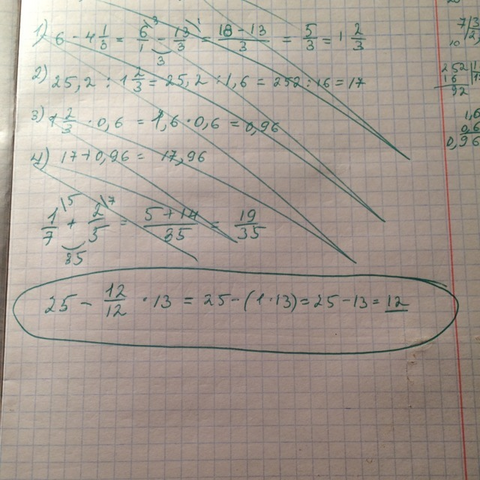 1) 6 - 4 1/3 = 6/1 \3 - 13/3 \1 = (18 - 13)/3 = 5/3 = 1 2/3
3
2) 25,2 : 1 2/3 = 25,2 : 1,6 = 252 : 16 = 17
3) 1 2/3 · 0,6 = 1,6 · 0,6 = 0,96
4) 17 + 0,96 = 17,96
1/7 \5 + 2/5 \7 = (5 + 14)/35 = 19/35
35
25 - 12/12 · 13 = 25 - (1 · 13) = 25 - 13 = 12
713
252
16
92
1,6
0,6
0,96